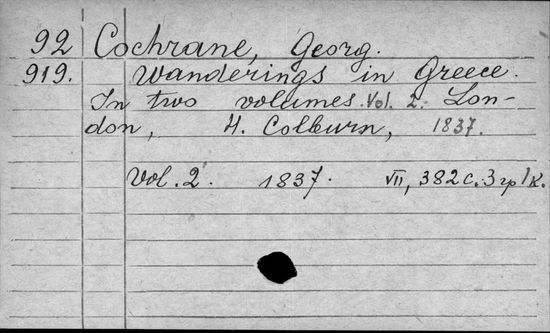 92 Cochrane, Georg.
919. Wanderings in Greece.
In two volumes. Vol. 2. Lon-
don, H. Colburn, 1837.
Vol. 2. 1837. VII, 382 c. 3 гр/к.